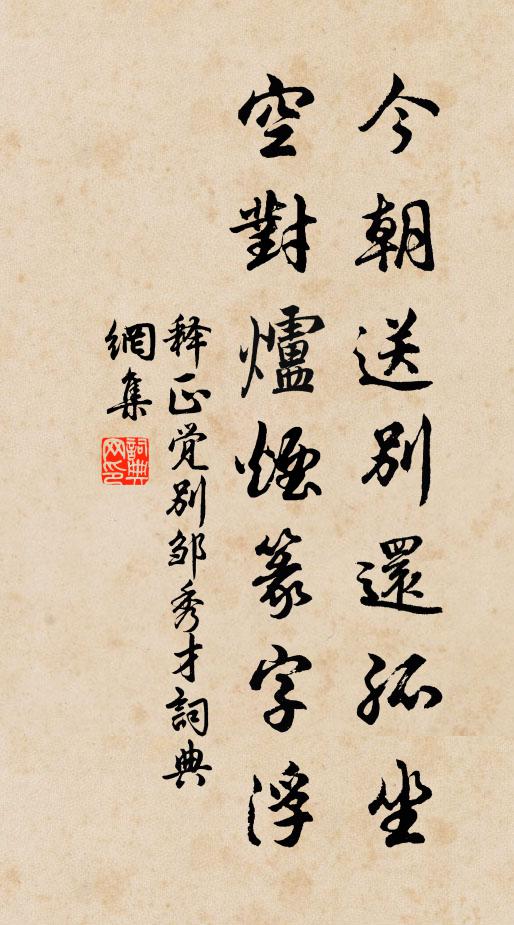 今朝送别還孤坐
空對爐煙篆字浮
释正觉别邹秀才詞典
網集
詞典网印